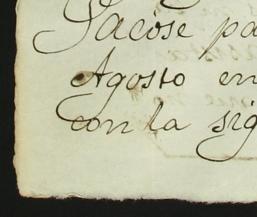 Sacose pa
Agosto en
con la sig